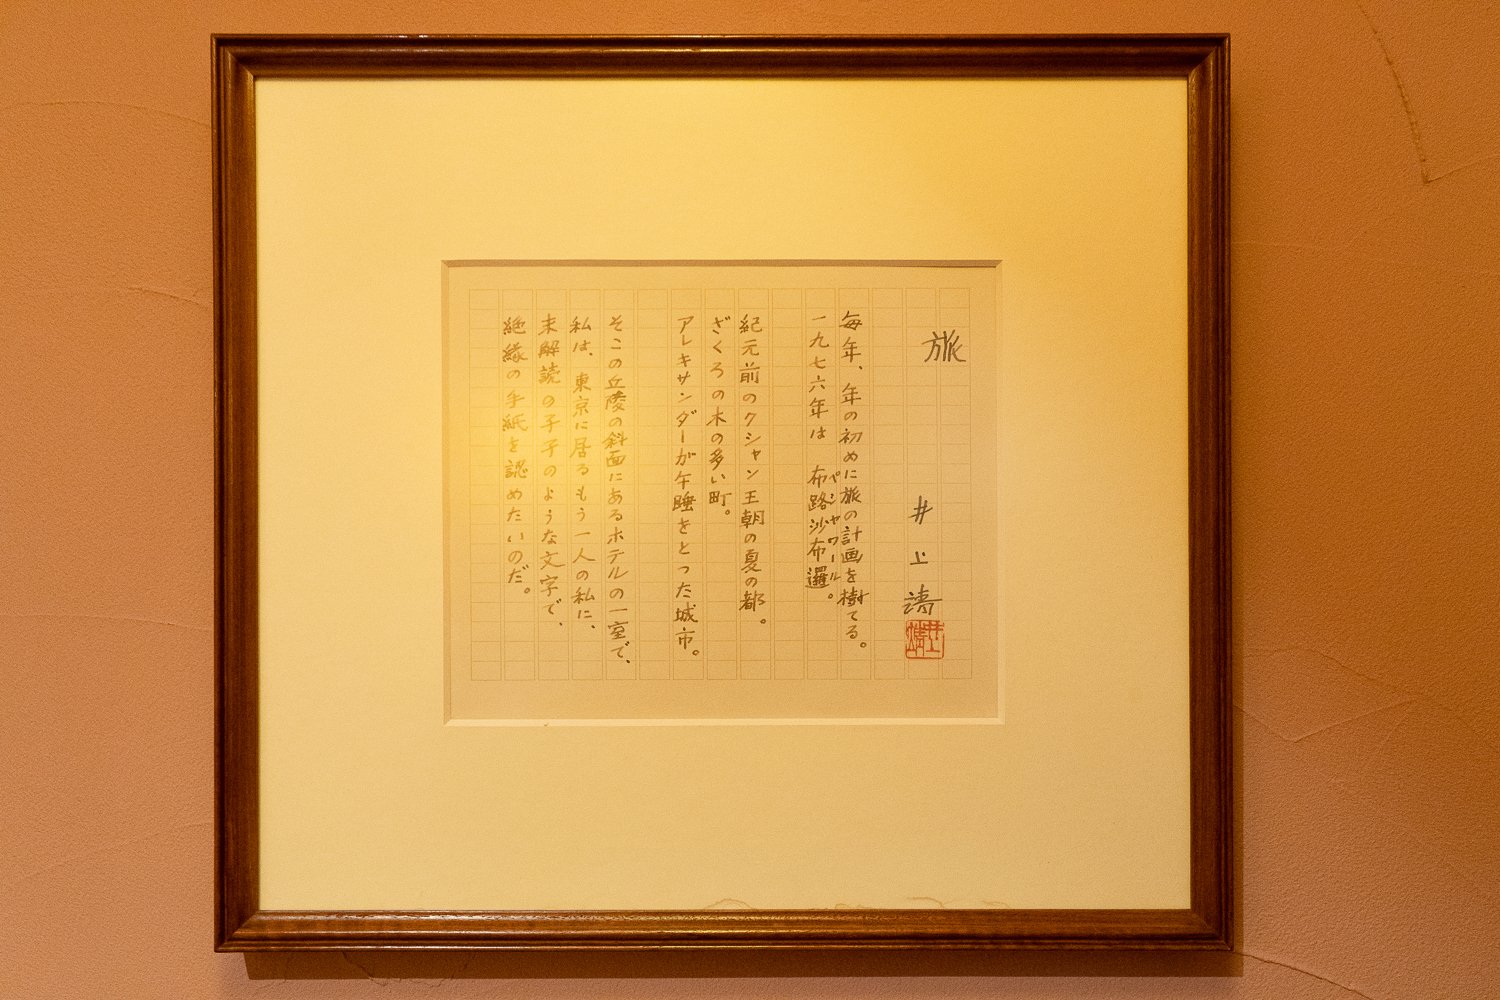 旅
井上靖
井上靖
毎年、年の初めに旅の計画を樹てる。
一九七六年は 布路沙布邏。
ペシャワール
紀元前のクシャン王朝の夏の都。
ざくろの木の多い町。
アレキサンダーが午睡をとった城市。
そこの丘陵の斜面にあるホテルの一室で、
私は、東京に居るもう一人の私に、
未解読の孑孑のような文字で、
絶縁の手紙を認めたいのだ。